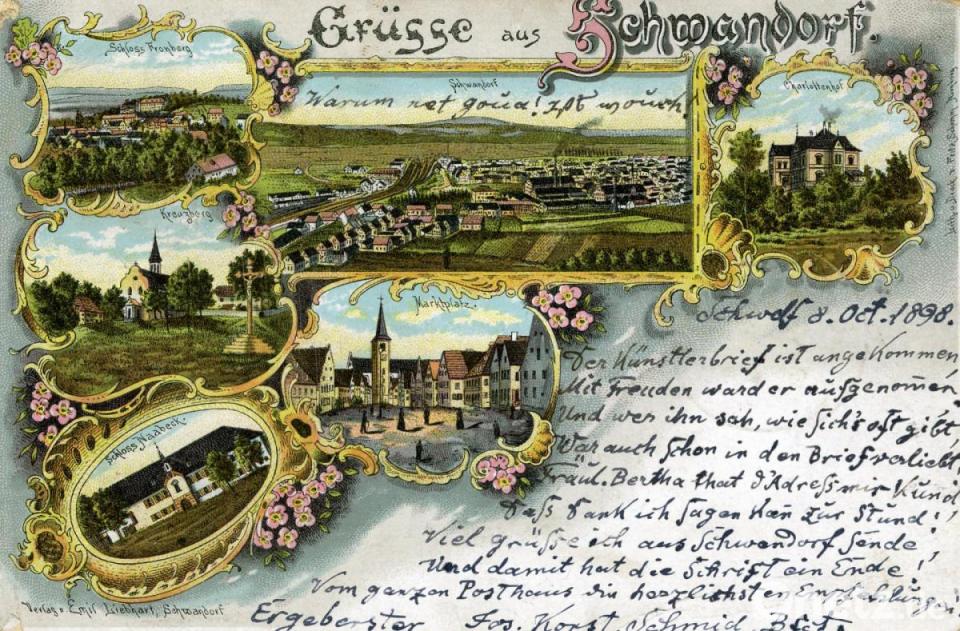 Grüsse aus Schwandorf.
Schloss Fronberg
Schwandorf
Warum net goua!
Charlottenhof
Kreuzberg
Marktplatz.
Schloss Naabeck.
Schwdf 8. Oct. 1898.
Der Künstlerbrief ist angekommen
Mit Freuden ward er aufgenom̄en
Und wer ihn sah, wie sich's oft gibt,
War auch schon in den Brief verliebt
Fräul. Bertha that d'Adress mir Kund
Dass Dank ich sagen kan̄ zur Stund!
Viel grüsse ich aus Schwandorf sende,
Und damit hat die Schrift ein Ende!
Vom ganzen Posthaus die herzlichsten Empfehlungen!
Ergebenster Jos. Schmid
Verlag v. Emil Liebhart, Schwandorf